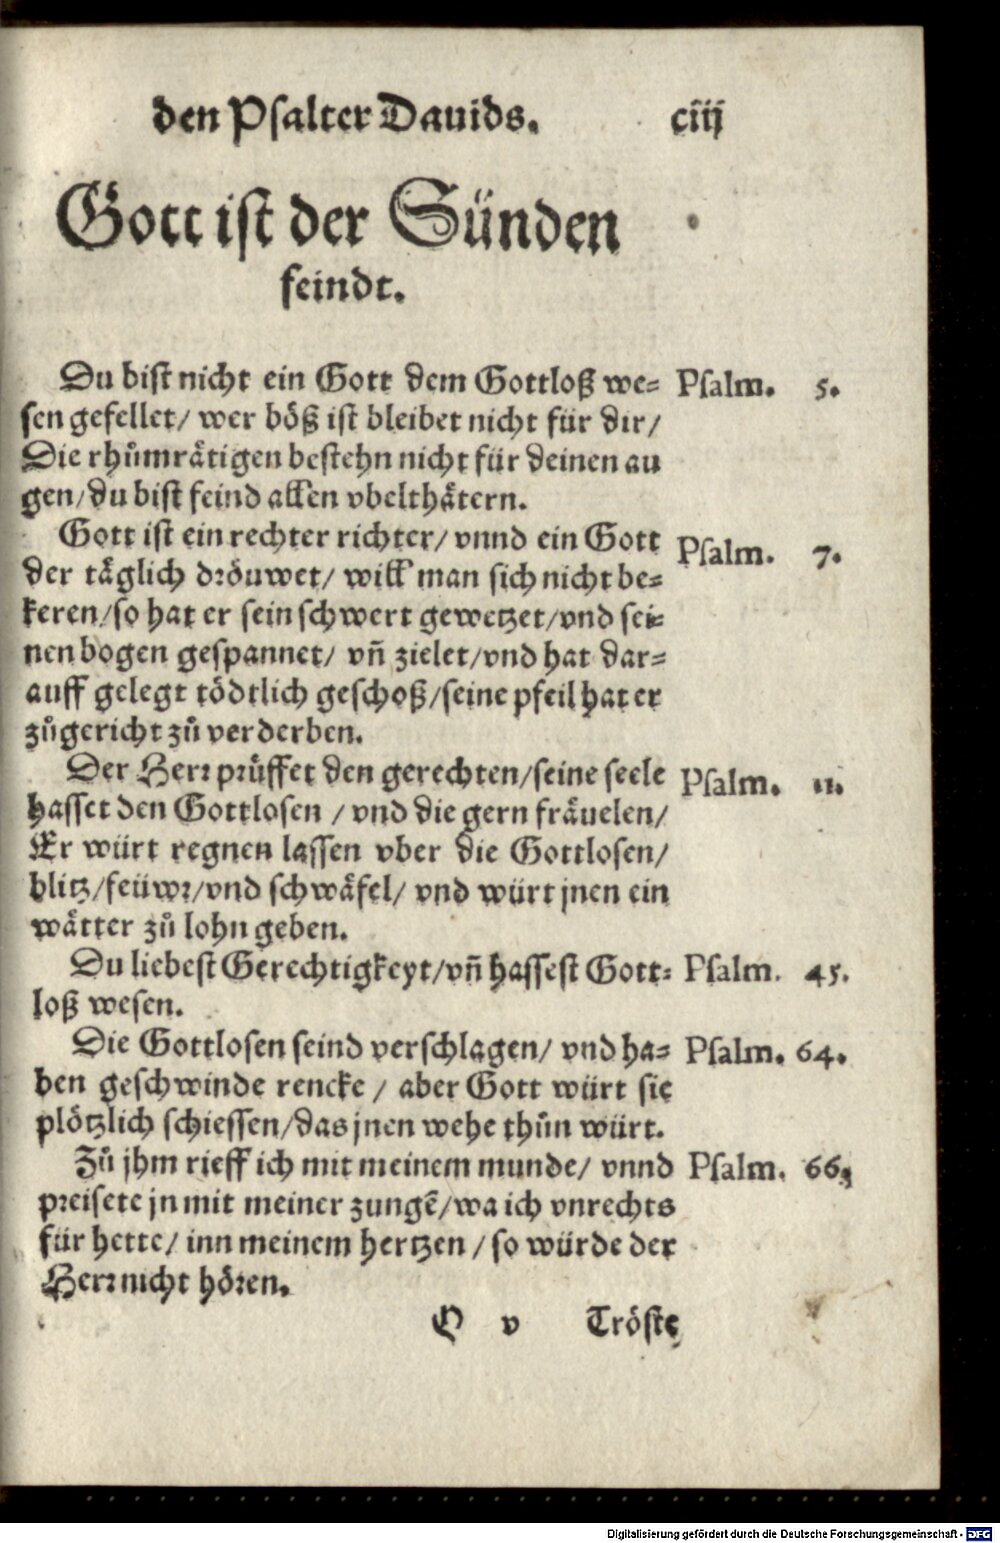 den Psalter Dauids. ciij
Gott ist der Sünden
feindt.
Du bist nicht ein Gott dem Gottloß we= Psalm. 5.
sen gefellet/ wer böß ist bleibet nicht für dir/
Die rhůmrätigen bestehn nicht für deinen au
gen/du bist feind allen vbelthätern.
Gott ist ein rechter richter/ vnnd ein Gott Psalm. 7.
der täglich dröuwet/ will man sich nicht be=
keren/so hat er sein schwert gewetzet/vnd sei=
nen bogen gespannet/ vñ zielet/vnd hat dar=
auff gelegt tödtlich geschoß/seine pfeil hat er
zůgericht zů verderben.
Der Herr prüffet den gerechten/seine seele Psalm. 11.
hasset den Gottlosen / vnd die gern fräuelen/
Er würt regnen lassen vber die Gottlosen/
blitz/feüwr/vnd schwäfel/ vnd würt jnen ein
wätter zů lohn geben.
Du liebest Gerechtigkeyt/vñ hassest Gott= Psalm. 45.
loß wesen.
Die Gottlosen seind verschlagen/ vnd ha= Psalm. 64.
ben geschwinde rencke / aber Gott würt sie
plötzlich schiessen/das jnen wehe thůn würt.
Zů jhm rieff ich mit meinem munde/ vnnd Psalm. 66.
preisete jn mit meiner zungẽ/wa ich vnrechts
für hette/ inn meinem hertzen / so würde der
Herr nicht hören.
O v Tröste
Digitalisierung gefördert durch die Deutsche Forschungsgemeinschaft - DFG